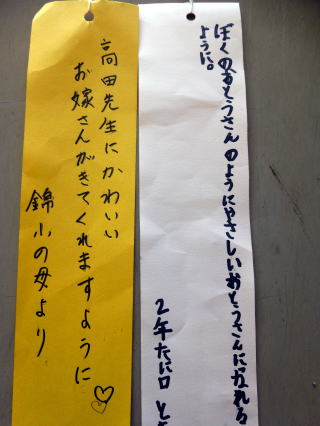 ぼくのおとうさんのようにやさしいおとうさんになれる
ように。
2年たに口と
高田先生にかわいい
お嫁さんがきてくれますように
錦小の母より